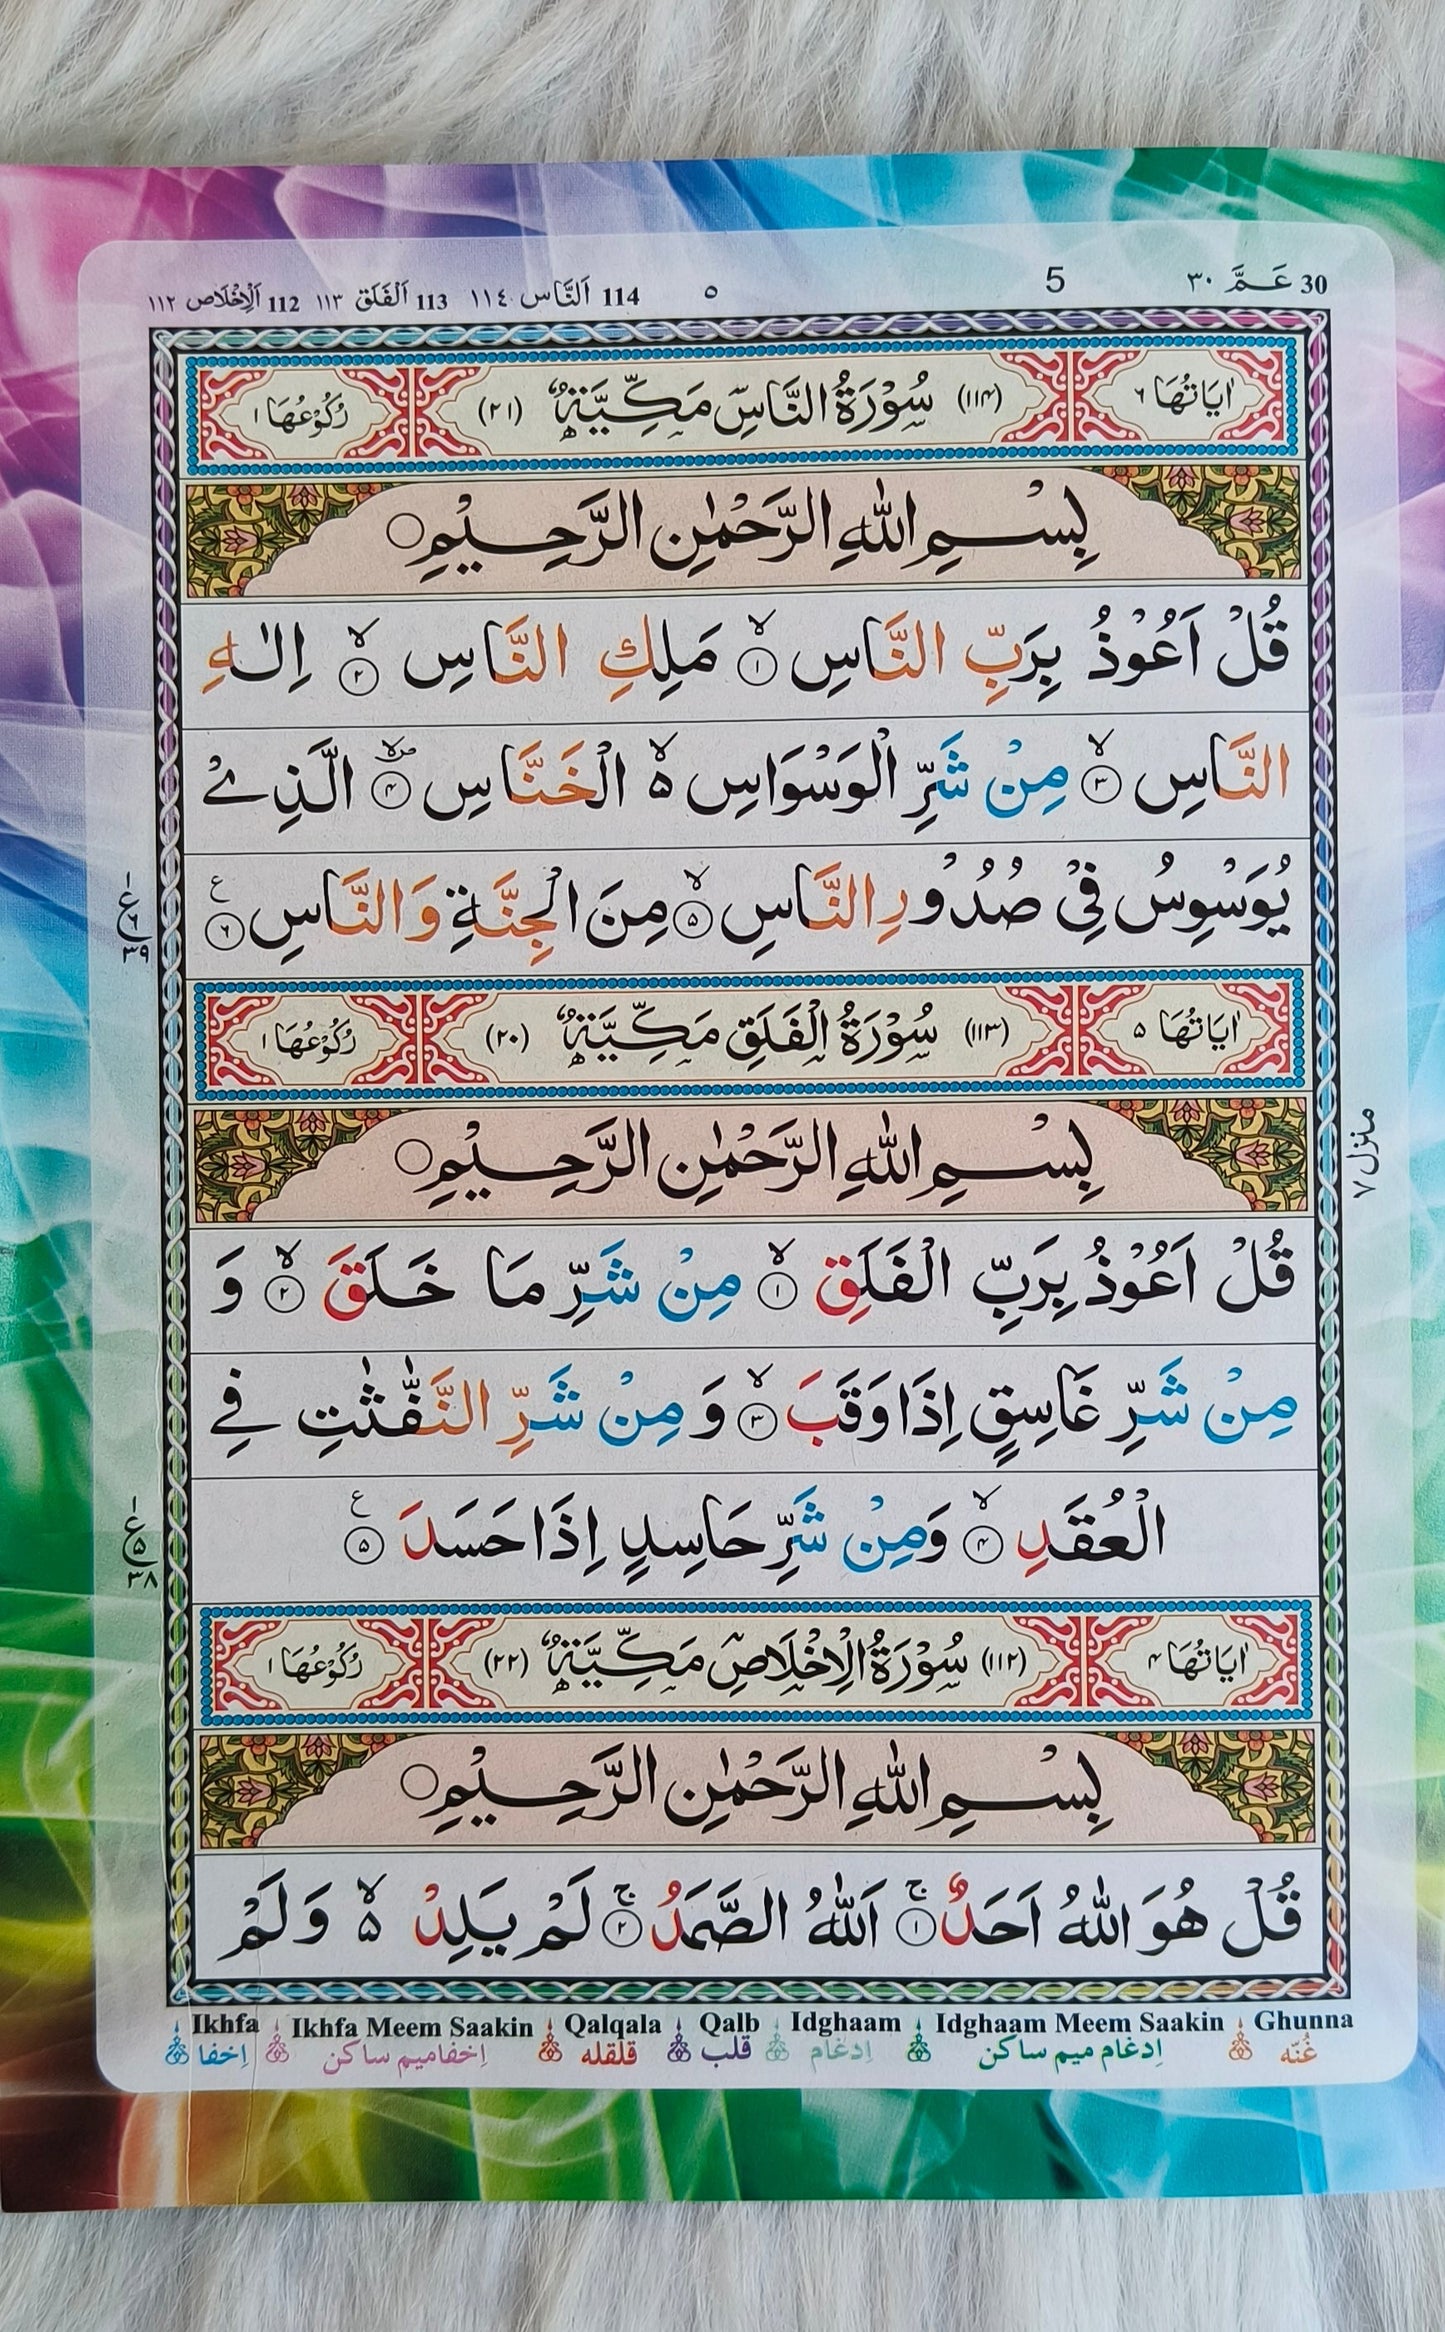 30 عَـمَّ ٣٠ 5 ٥ 114 اَلنَّاس ١١٤ 113 اَلْفَلَق ١١٣ 112 اَلْاِخْلَاص ١١٢
اٰيَاتُهَا ٦ (١١٤) سُوْرَةُ النَّاسِ مَكِّيَّةٌ (٢١) رُكُوْعُهَا ١
بِسْمِ اللّٰهِ الرَّحْمٰنِ الرَّحِيْمِ
قُلْ اَعُوْذُ بِرَبِّ النَّاسِ ۙ ١ مَلِكِ النَّاسِ ۙ ٢ اِلٰهِ
النَّاسِ ۙ ٣ مِنْ شَرِّ الْوَسْوَاسِ ۙ ٥ الْخَنَّاسِ ۙ ٤ الَّذِيْ
يُوَسْوِسُ فِيْ صُدُوْرِ النَّاسِ ۙ ٥ مِنَ الْجِنَّةِ وَالنَّاسِ ٦ ع
ع ٦ ٣٩
اٰيَاتُهَا ٥ (١١٣) سُوْرَةُ الْفَلَقِ مَكِّيَّةٌ (٢٠) رُكُوْعُهَا ١
بِسْمِ اللّٰهِ الرَّحْمٰنِ الرَّحِيْمِ
منزل ٧
قُلْ اَعُوْذُ بِرَبِّ الْفَلَقِ ۙ ١ مِنْ شَرِّ مَا خَلَقَ ۙ ٢ وَ
مِنْ شَرِّ غَاسِقٍ اِذَا وَقَبَ ۙ ٣ وَ مِنْ شَرِّ النَّفّٰثٰتِ فِي
الْعُقَدِ ۙ ٤ وَمِنْ شَرِّ حَاسِدٍ اِذَا حَسَدَ ٥ ع
ع ٥ ٣٨
اٰيَاتُهَا ٤ (١١٢) سُوْرَةُ الْاِخْلَاصِ مَكِّيَّةٌ (٢٢) رُكُوْعُهَا ١
بِسْمِ اللّٰهِ الرَّحْمٰنِ الرَّحِيْمِ
قُلْ هُوَ اللّٰهُ اَحَدٌ ۚ ١ اَللّٰهُ الصَّمَدُ ۚ ٢ لَمْ يَلِدْ ۙ ٥ وَلَمْ
Ikhfa Ikhfa Meem Saakin Qalqala Qalb Idghaam Idghaam Meem Saakin Ghunna
غُنّه اِدغام ميم ساكن اِدغام قلب قلقله اِخفاميم ساكن اِخفا